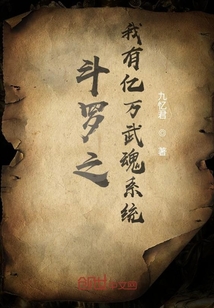 斗罗之
我有亿万武魂系统
九忆君 ◎ 著